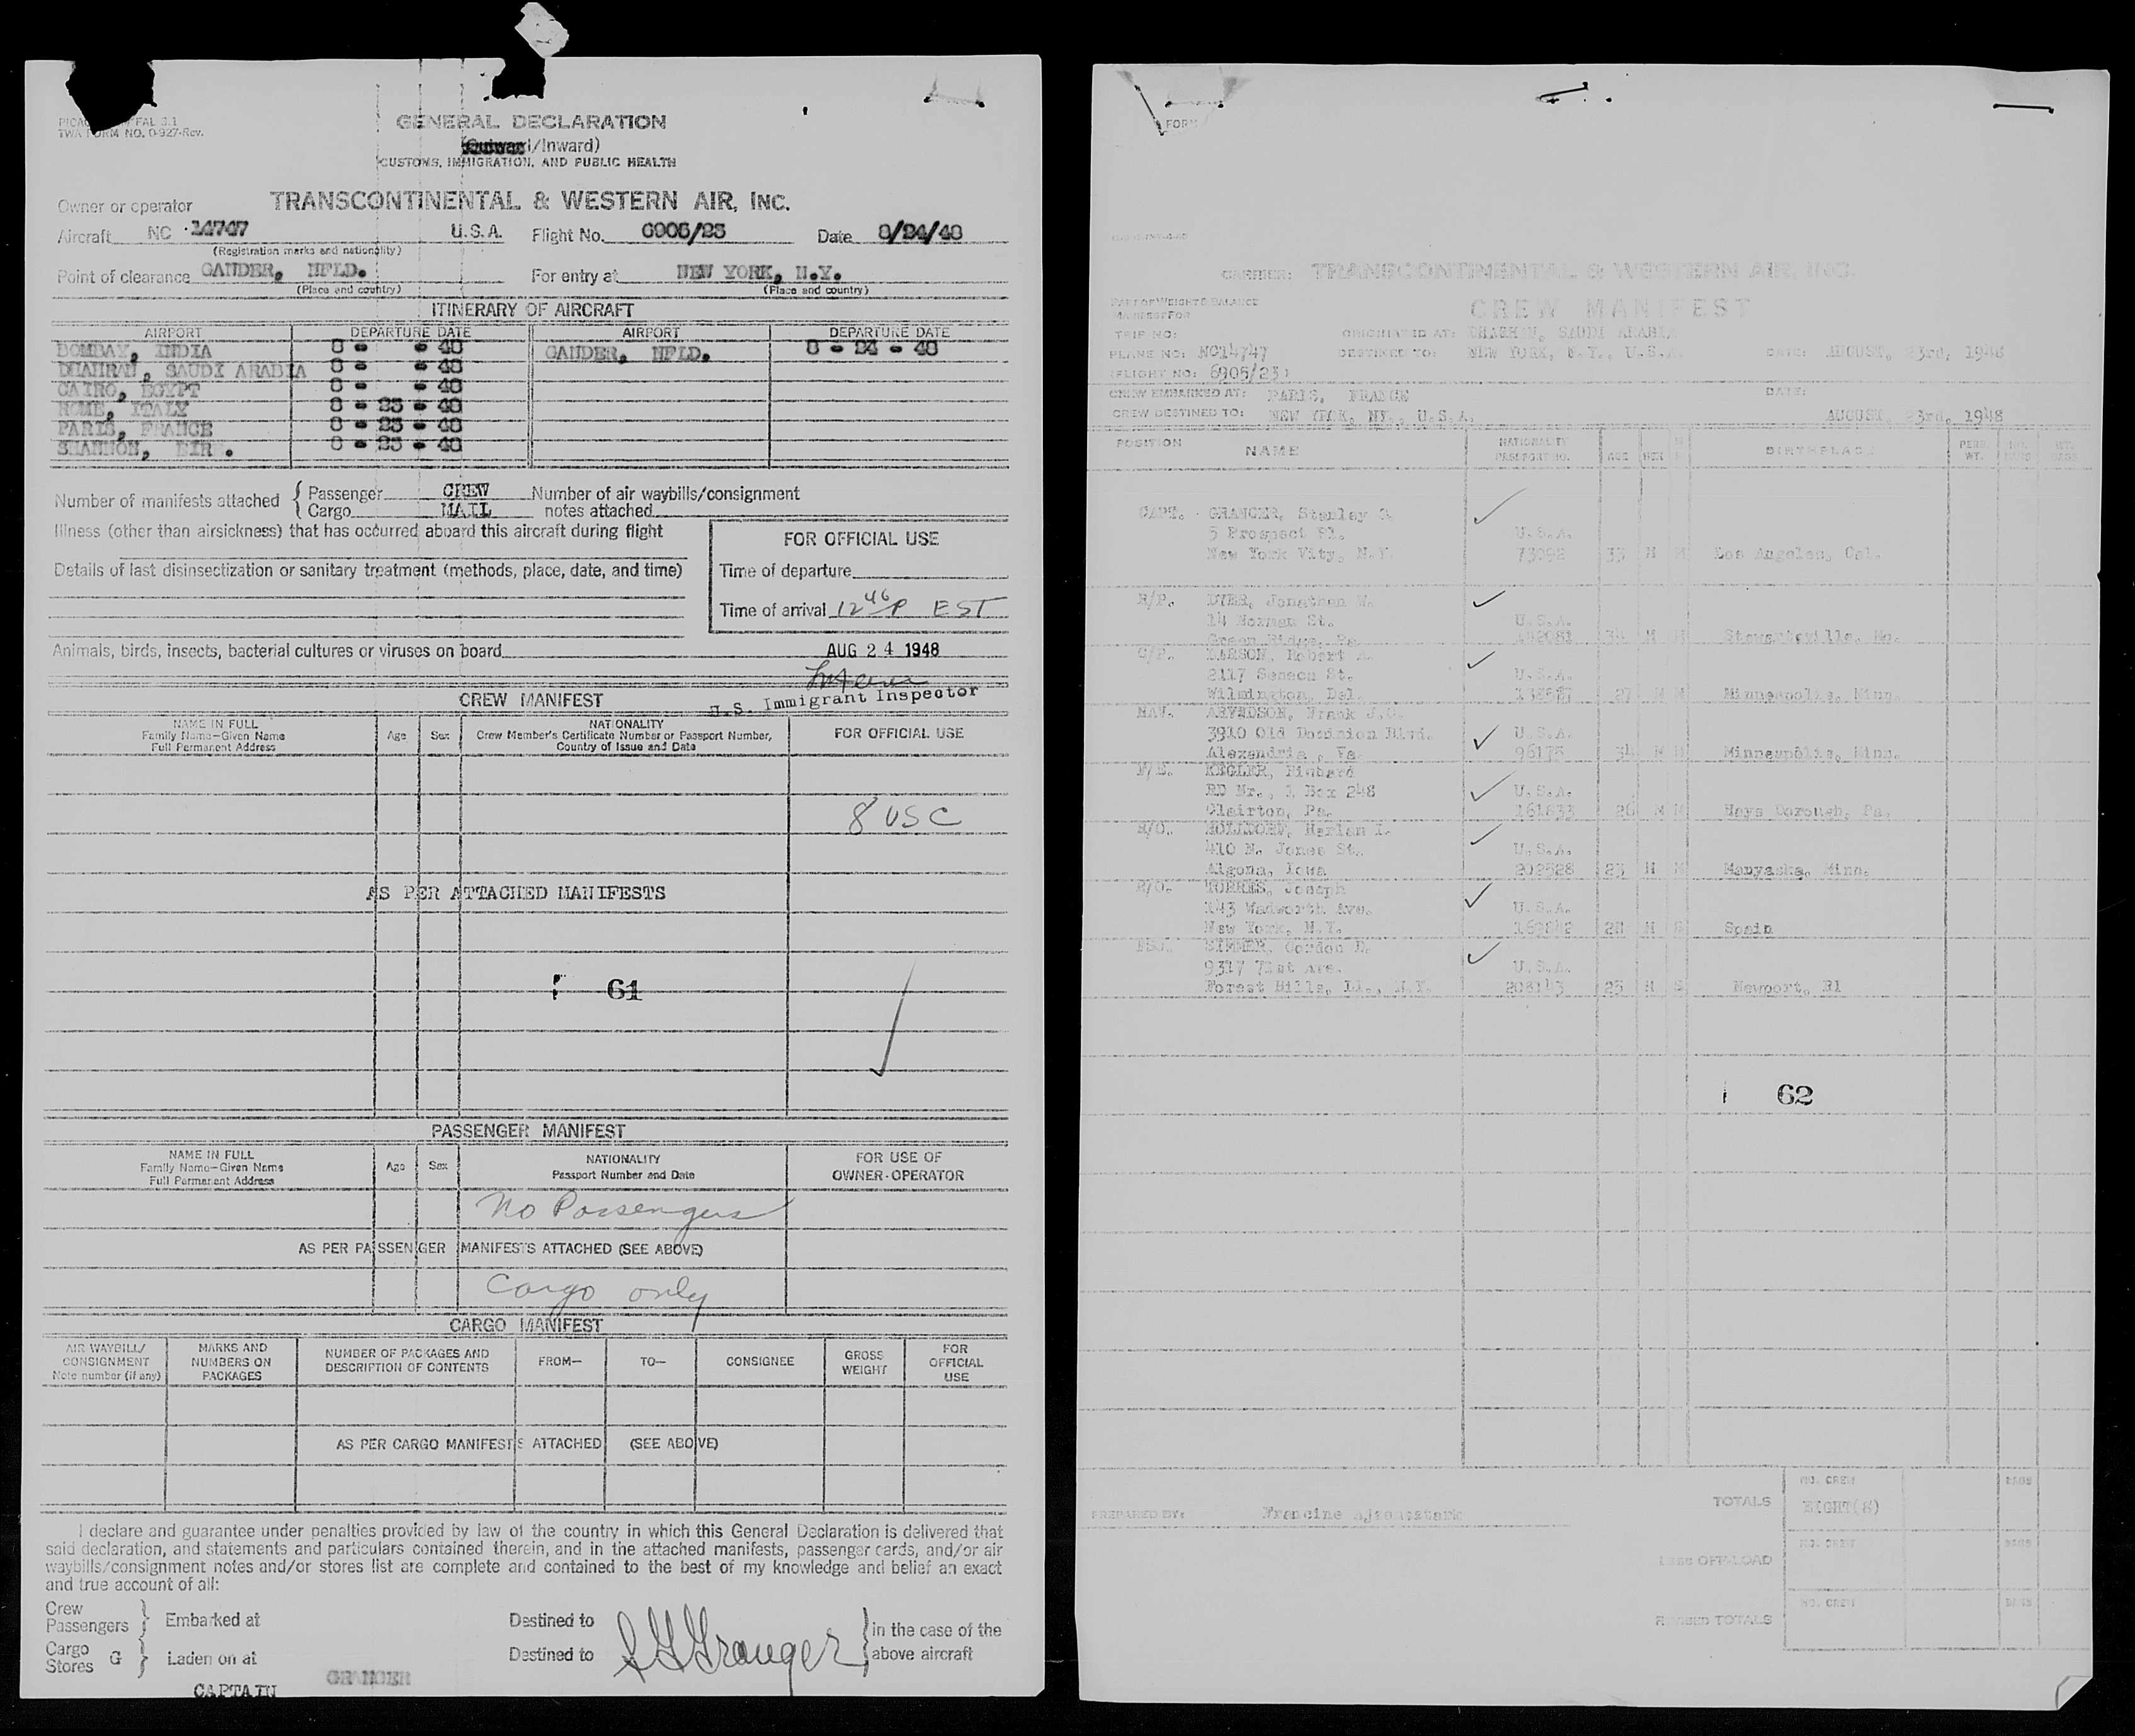 TWA FORM NO. 0-927-Rev.
GENERAL DECLARATION
/Inward)
CUSTOMS, IMMIGRATION, AND PUBLIC HEALTH
Owner or operator TRANSCONTINENTAL & WESTERN AIR, INC.
Aircraft NC 14747 U.S.A. Flight No. 6905/23 Date 8/24/48
(Registration marks and nationality)
Point of clearance GANDER, NFLD. For entry at NEW YORK, N.Y.
(Place and country) (Place and country)
ITINERARY OF AIRCRAFT
AIRPORT DEPARTURE DATE AIRPORT DEPARTURE DATE
BOMBAY, INDIA 8 - - 48 GANDER, NFLD. 8 - 24 - 48
DHAHRAN, SAUDI ARABIA 8 - - 48
CAIRO, EGYPT 8 - - 48
ROME, ITALY 8 - 23 - 48
PARIS, FRANCE 8 - 23 - 48
SHANNON, EIR . 8 - 23 - 48
Number of manifests attached { Passenger CREW Number of air waybills/consignment
Cargo MAIL notes attached
Illness (other than airsickness) that has occurred aboard this aircraft during flight
FOR OFFICIAL USE
Details of last disinsectization or sanitary treatment (methods, place, date, and time)
Time of departure
Time of arrival 12 46 P EST
Animals, birds, insects, bacterial cultures or viruses on board
AUG 24 1948
U.S. Immigrant Inspector
CREW MANIFEST
NAME IN FULL
Family Name—Given Name
Full Permanent Address
Age Sex
NATIONALITY
Crew Member's Certificate Number or Passport Number,
Country of Issue and Date
FOR OFFICIAL USE
8 USC
AS PER ATTACHED MANIFESTS
61
PASSENGER MANIFEST
NAME IN FULL
Family Name—Given Name
Full Permanent Address
Age Sex
NATIONALITY
Passport Number and Date
FOR USE OF
OWNER-OPERATOR
No Passengers
AS PER PASSENGER MANIFESTS ATTACHED (SEE ABOVE)
Cargo only
CARGO MANIFEST
AIR WAYBILL/
CONSIGNMENT
Note number (if any)
MARKS AND
NUMBERS ON
PACKAGES
NUMBER OF PACKAGES AND
DESCRIPTION OF CONTENTS
FROM— TO— CONSIGNEE
GROSS
WEIGHT
FOR
OFFICIAL
USE
AS PER CARGO MANIFESTS ATTACHED (SEE ABOVE)
I declare and guarantee under penalties provided by law of the country in which this General Declaration is delivered that
said declaration, and statements and particulars contained therein, and in the attached manifests, passenger cards, and/or air
waybills/consignment notes and/or stores list are complete and contained to the best of my knowledge and belief an exact
and true account of all:
Crew
Passengers } Embarked at Destined to
Cargo
Stores G } Laden on at Destined to
S G Granger
} in the case of the
above aircraft
GRANGER
CAPTAIN
FORM
CARRIER: TRANSCONTINENTAL & WESTERN AIR, INC.
PART OF WEIGHT & BALANCE
MANIFEST FOR
CREW MANIFEST
TRIP NO: ORIGINATED AT: DHAHRAN, SAUDI ARABIA
PLANE NO: NC14747 DESTINED TO: NEW YORK, N.Y., U.S.A. DATE: AUGUST, 23rd, 1948
(FLIGHT NO: 6905/23)
CREW EMBARKED AT: PARIS, FRANCE DATE:
CREW DESTINED TO: NEW YORK, NY., U.S.A. AUGUST, 23rd, 1948
POSITION NAME NATIONALITY PASSPORT NO. AGE SEX BIRTHPLACE PERS. WT.
CAPT. GRANGER, Stanley G.
5 Prospect Pl. U.S.A.
New York Vity, N.Y. 73092 33 M M Los Angeles, Cal.
DYER, Jonathan W.
14 Norman St. U.S.A.
Green Ridge, Pa. 34 M M Stewartsville, Mo.
LARSON, Robert A.
2117 Seneca St. U.S.A.
Wilmington, Del. 27 M M Minneapolis, Minn.
NAV. ARVEDSON, Frank J.C.
3910 Old Dominion Blvd. U.S.A.
Alexandria , Va. 96175 34 M M Minneapolis, Minn.
F/E. KEGLER, Richard
RD Nr., 1 Box 248 U.S.A.
Clairton, Pa. 161833 26 M M Hays Borough, Pa.
R/O. Harlan I.
410 N. Jones St. U.S.A.
Algona, Iowa 202528 23 M M
R/O. TORRES, Joseph
143 Wadworth Ave. U.S.A.
New York, N.Y. 28 M S Spain
Gordon D.
9317 71st Ave. U.S.A.
Forest Hills, LI., N.Y. 208143 25 M S Newport, RI
62
PREPARED BY: Francine
TOTALS NO. CREW EIGHT(8) BAGS
LESS OFF-LOAD NO. CREW BAGS
REVISED TOTALS NO. CREW BAGS